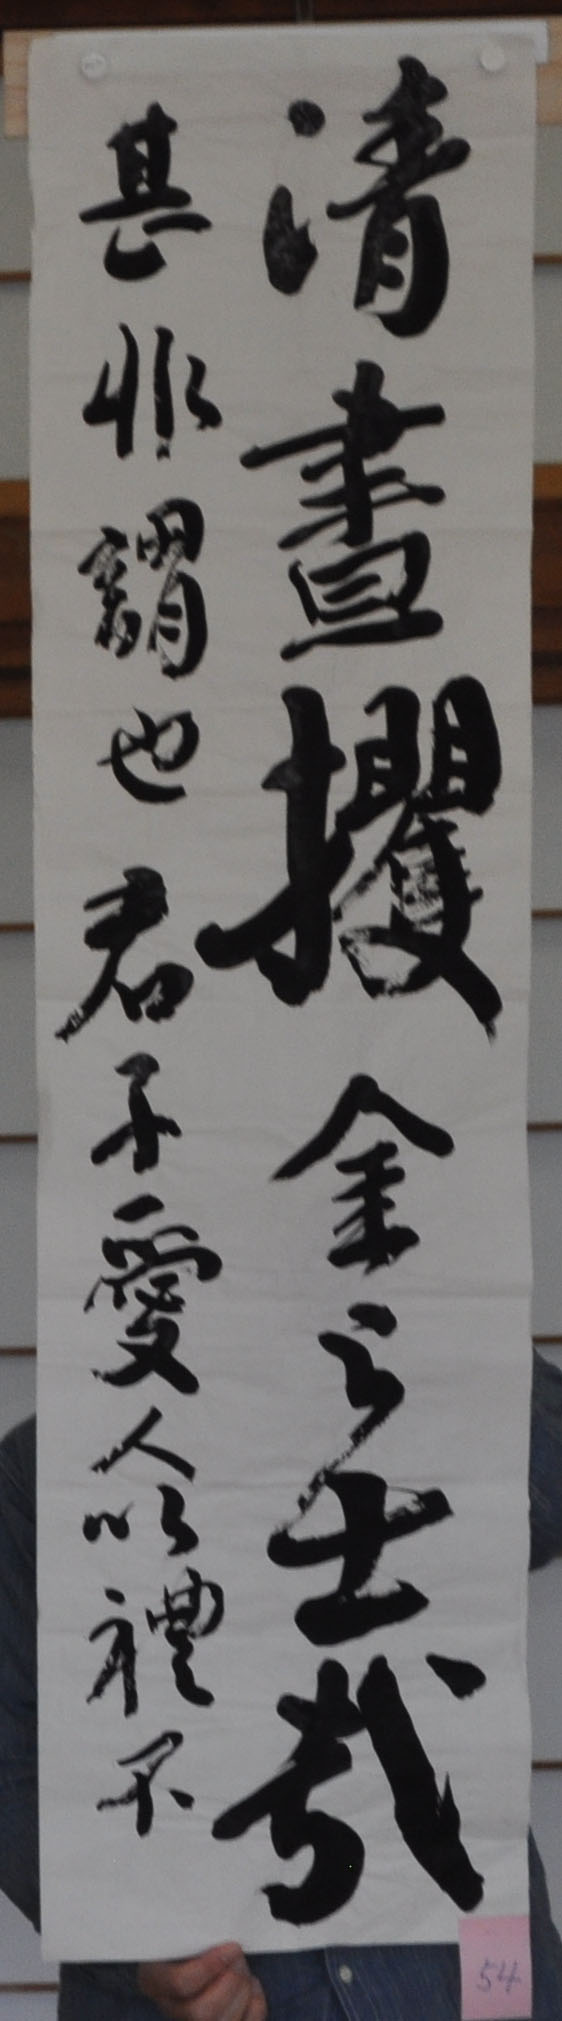 清晝攫金之士哉
甚非謂也君子愛人以禮不
54